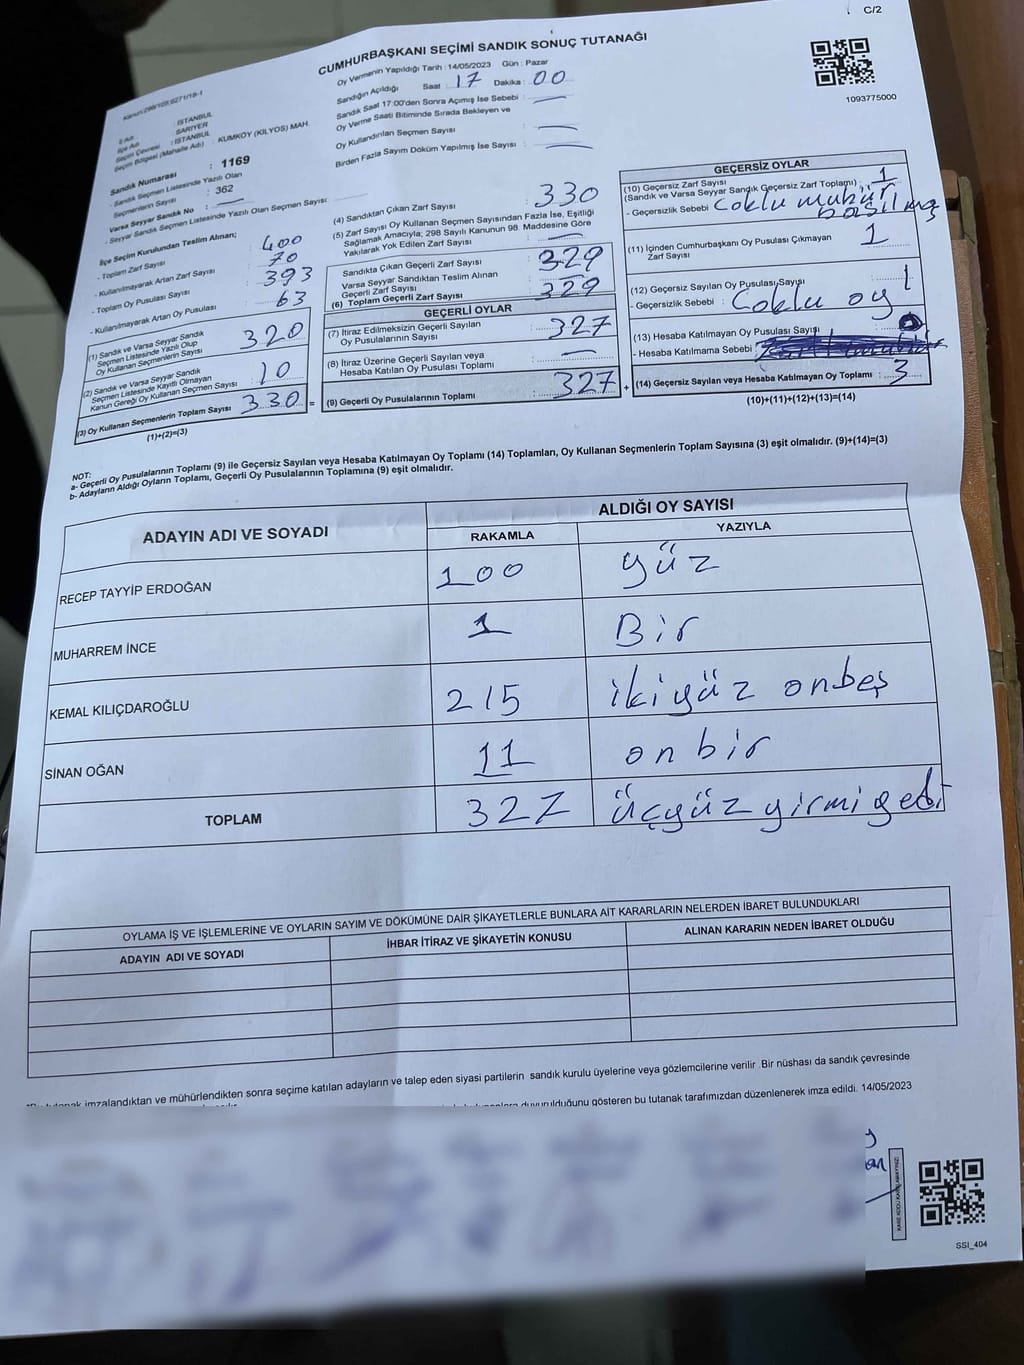 C/2
CUMHURBAŞKANI SEÇİMİ SANDIK SONUÇ TUTANAĞI
1093775000
Oy Vermenin Yapıldığı Tarih : 14/05/2023 Gün : Pazar
Sandığın Açıldığı Saat 17 Dakika : 00
Sandık Saat 17:00'den Sonra Açımış İse Sebebi :
Oy Verme Saati Bitiminde Sırada Bekleyen ve
Oy Kullandırılan Seçmen Sayısı :
Birden Fazla Sayım Döküm Yapılmış İse Sayısı :
İl Adı : İSTANBUL
İlçe Adı : SARIYER
Seçim Çevresi : İSTANBUL
Seçim Bölgesi (Mahalle Adı) : KUMKÖY (KİLYOS) MAH.
Sandık Numarası : 1169
- Sandık Seçmen Listesinde Yazılı Olan
Seçmenlerin Sayısı : 362
Varsa Seyyar Sandık No :
- Seyyar Sandık Seçmen Listesinde Yazılı Olan Seçmen Sayısı:
İlçe Seçim Kurulundan Teslim Alınan;
- Toplam Zarf Sayısı 400
- Kullanılmayarak Artan Zarf Sayısı 70
- Toplam Oy Pusulası Sayısı 393
- Kullanılmayarak Artan Oy Pusulası 63
(1) Sandık ve Varsa Seyyar Sandık
Seçmen Listesinde Yazılı Olup
Oy Kullanan Seçmenlerin Sayısı 320
(2) Sandık ve Varsa Seyyar Sandık
Seçmen Listesinde Kayıtlı Olmayan
Kanun Gereği Oy Kullanan Seçmen Sayısı 10
(3) Oy Kullanan Seçmenlerin Toplam Sayısı 330 =
(1)+(2)=(3)
(4) Sandıktan Çıkan Zarf Sayısı : 330
(5) Zarf Sayısı Oy Kullanan Seçmen Sayısından Fazla İse, Eşitliği
Sağlamak Amacıyla; 298 Sayılı Kanunun 98. Maddesine Göre
Yakılarak Yok Edilen Zarf Sayısı :
Sandıkta Çıkan Geçerli Zarf Sayısı : 329
Varsa Seyyar Sandıktan Teslim Alınan
Geçerli Zarf Sayısı :
(6) Toplam Geçerli Zarf Sayısı : 329
GEÇERLİ OYLAR
(7) İtiraz Edilmeksizin Geçerli Sayılan
Oy Pusulalarının Sayısı : 327
(8) İtiraz Üzerine Geçerli Sayılan veya
Hesaba Katılan Oy Pusulası Toplamı :
(9) Geçerli Oy Pusulalarının Toplamı : 327 +
GEÇERSİZ OYLAR
(10) Geçersiz Zarf Sayısı
(Sandık ve Varsa Seyyar Sandık Geçersiz Zarf Toplamı) : 1
- Geçersizlik Sebebi : Çoklu mühür
basılmış
(11) İçinden Cumhurbaşkanı Oy Pusulası Çıkmayan
Zarf Sayısı : 1
(12) Geçersiz Sayılan Oy Pusulası Sayısı : 1
- Geçersizlik Sebebi : Çoklu oy
(13) Hesaba Katılmayan Oy Pusulası Sayısı
- Hesaba Katılmama Sebebi :
(14) Geçersiz Sayılan veya Hesaba Katılmayan Oy Toplamı : 3
(10)+(11)+(12)+(13)=(14)
NOT:
a- Geçerli Oy Pusulalarının Toplamı (9) ile Geçersiz Sayılan veya Hesaba Katılmayan Oy Toplamı (14) Toplamları, Oy Kullanan Seçmenlerin Toplam Sayısına (3) eşit olmalıdır. (9)+(14)=(3)
b- Adayların Aldığı Oyların Toplamı, Geçerli Oy Pusulalarının Toplamına (9) eşit olmalıdır.
ADAYIN ADI VE SOYADI
ALDIĞI OY SAYISI
RAKAMLA YAZIYLA
RECEP TAYYİP ERDOĞAN 100 yüz
MUHARREM İNCE 1 Bir
KEMAL KILIÇDAROĞLU 215 ikiyüz onbeş
SİNAN OĞAN 11 on bir
TOPLAM 327 üçyüz yirmi yedi
OYLAMA İŞ VE İŞLEMLERİNE VE OYLARIN SAYIM VE DÖKÜMÜNE DAİR ŞİKAYETLERLE BUNLARA AİT KARARLARIN NELERDEN İBARET BULUNDUKLARI
ADAYIN ADI VE SOYADI İHBAR İTİRAZ VE ŞİKAYETİN KONUSU ALINAN KARARIN NEDEN İBARET OLDUĞU
tutanak imzalandıktan ve mühürlendikten sonra seçime katılan adayların ve talep eden siyasi partilerin sandık kurulu üyelerine veya gözlemcilerine verilir .Bir nüshası da sandık çevresinde
duyurulduğunu gösteren bu tutanak tarafımızdan düzenlenerek imza edildi. 14/05/2023
SSI_404